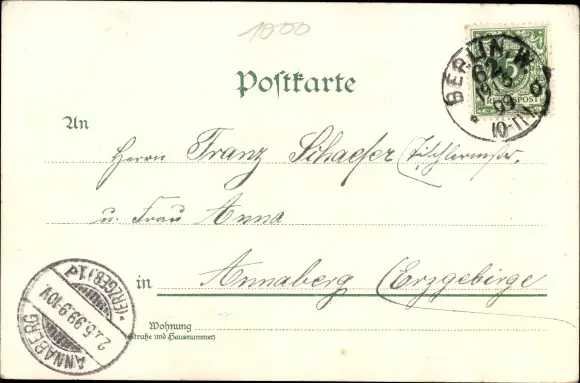 1000
BERLIN. W.
62
5
REICHSPOST
99
10-11V.
Postkarte
An
Herrn Franz Schaefer (Tischlermstr.
u. Frau Anna
in Annaberg (Erzgebirge
Wohnung
(Straße und Hausnummer)
ANNABERG
*(ERZGEB.)1.d
2.5.99.9-10V.